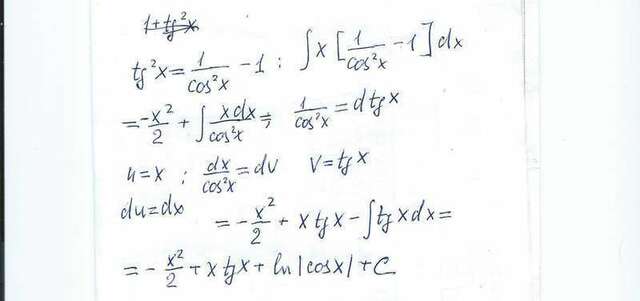 1+tg²x
tg²x = 1/cos²x - 1 ; ∫ x [1/cos²x - 1] dx
= -x²/2 + ∫ xdx/cos²x = ; 1/cos²x = d tg x
u = x ; dx/cos²x = dv v = tg x
du = dx = -x²/2 + x tg x - ∫ tg x dx =
= -x²/2 + x tg x + ln|cosx| + C